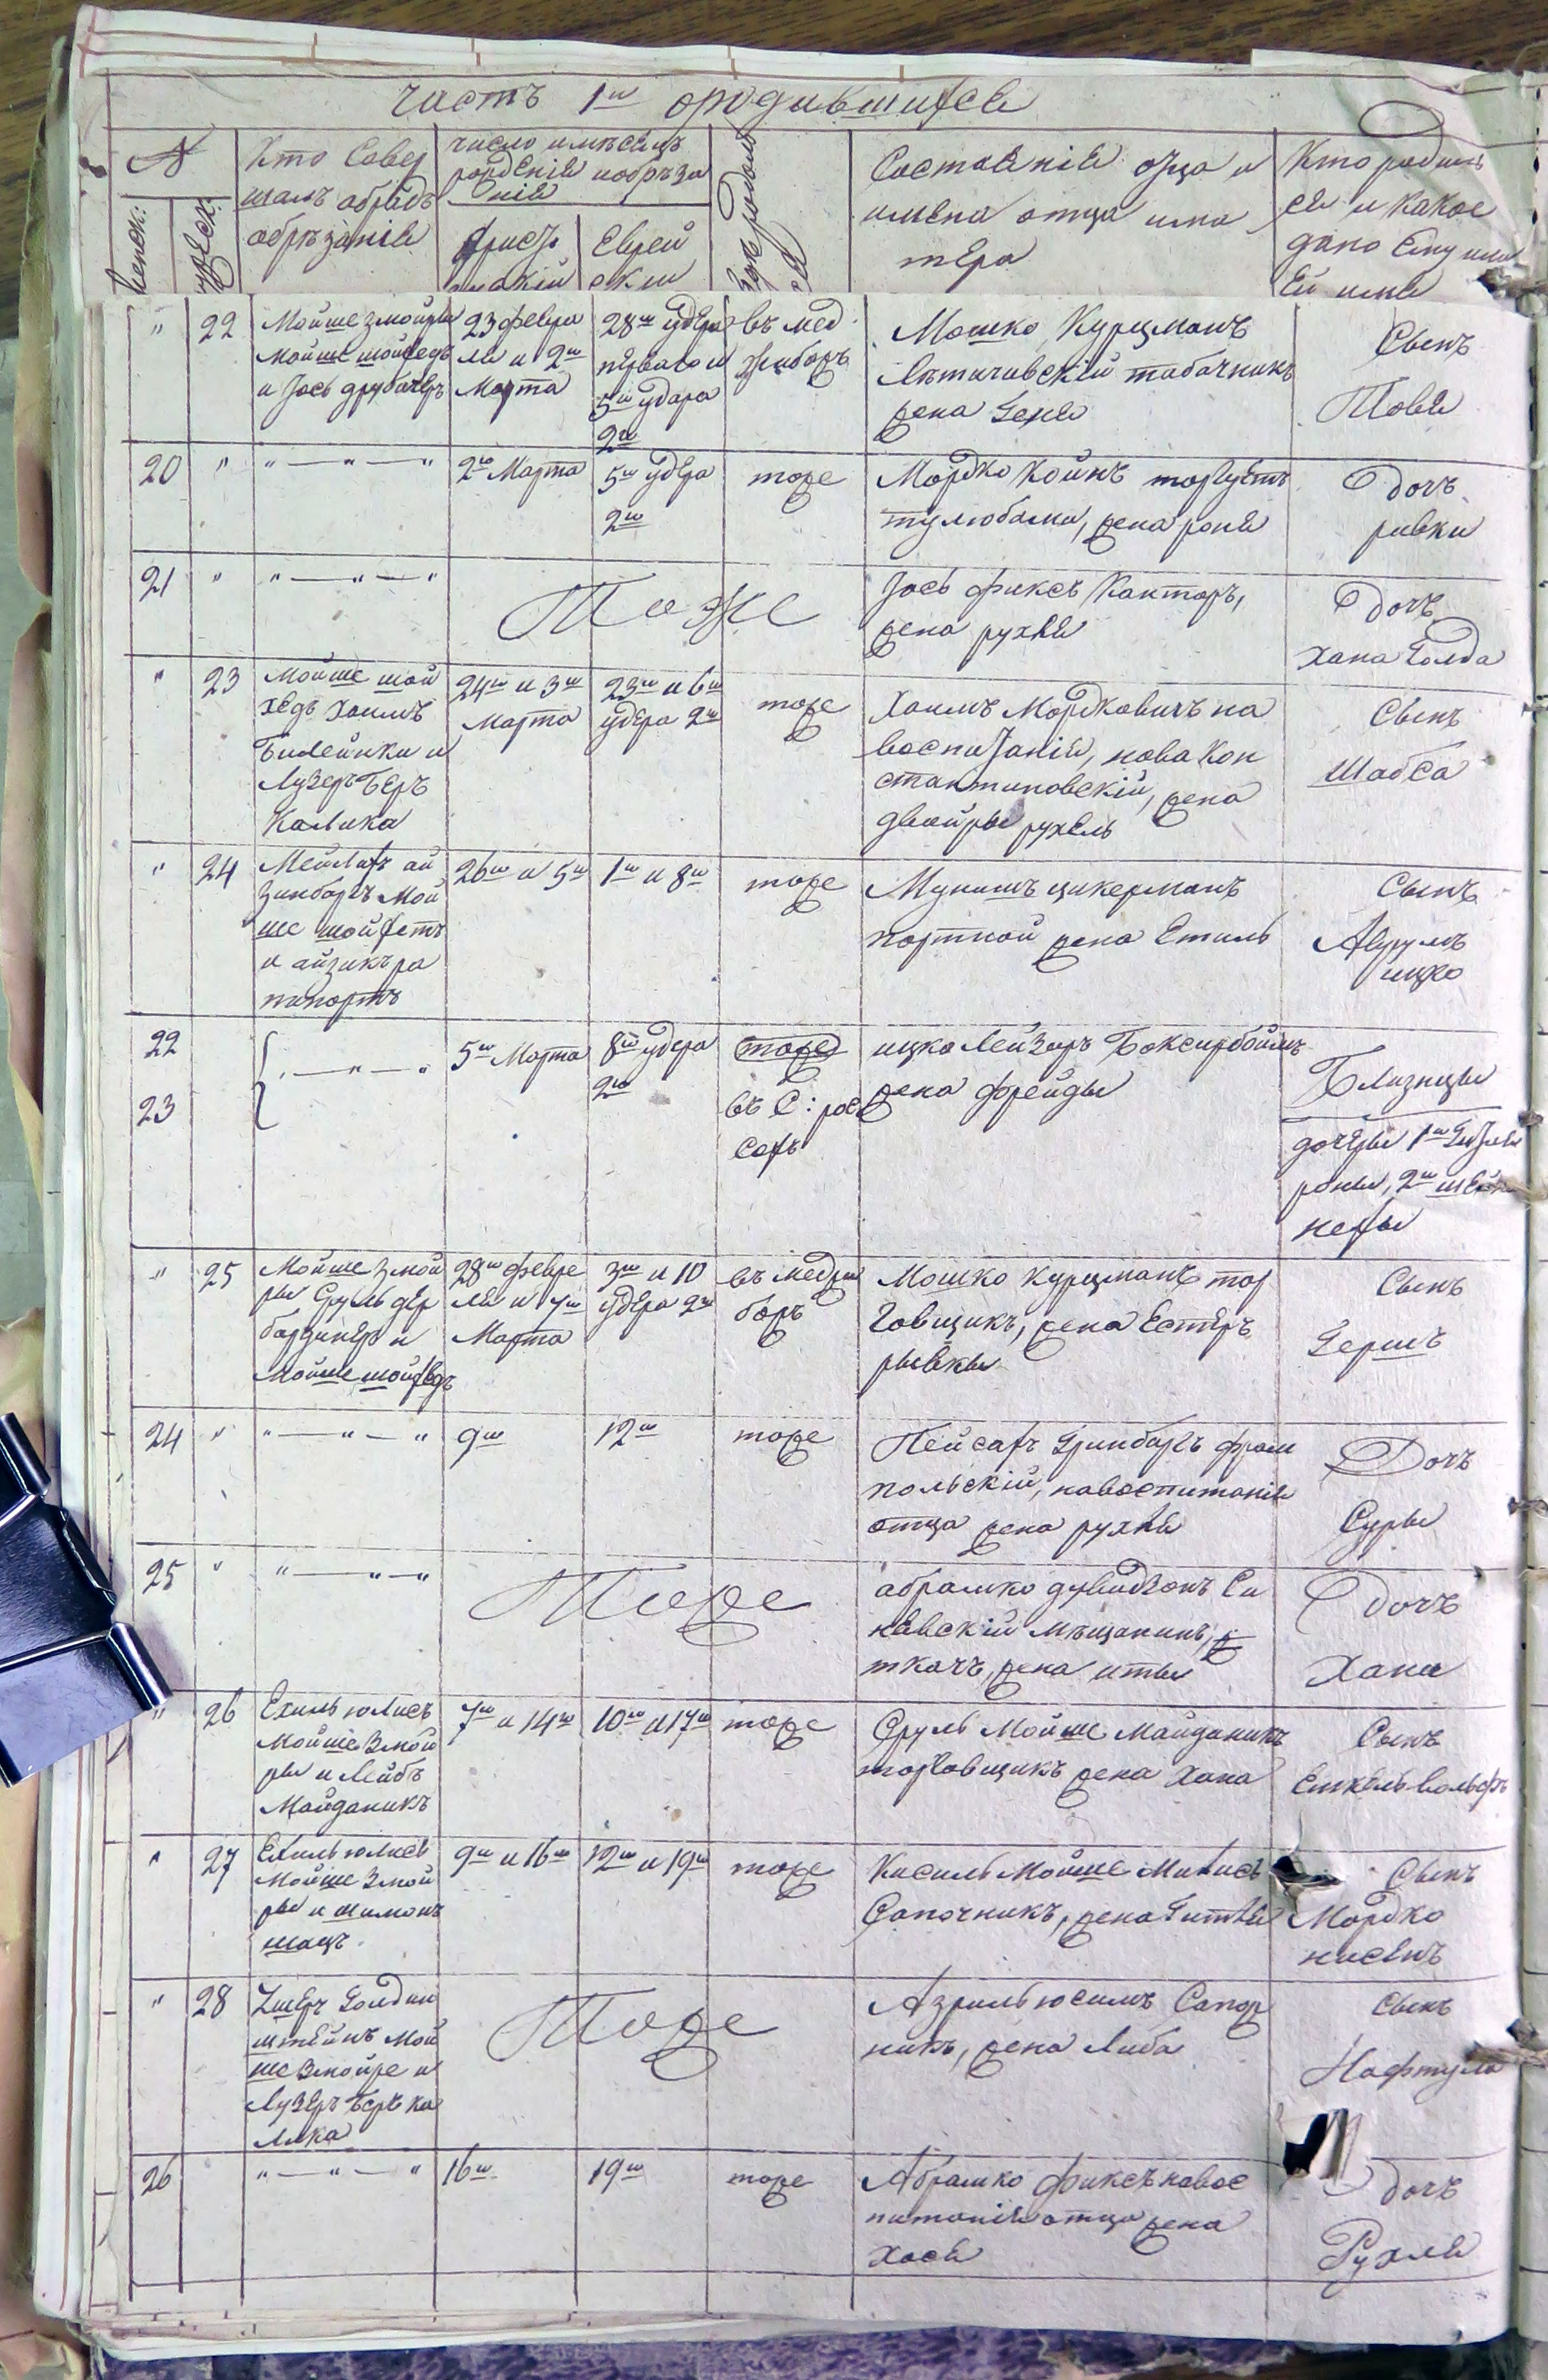 часть 1ш ородившихся
№
женск:
мужеск:
Кто Совер
шалъ абрядъ
абрѣзанія
число и мѣсецъ
рожденія иобрѣза
нія
христі
анскій
Еврей
скій
Гдѣ родил
ся
Состояніе отца и
имена отца и ма
тера
Кто родил
ся и какое
дано Ему или
Ей имя
" 22
Мойше змойры
мойше шойхедъ
и Іось
23 февра
ля и 2ш
Марта
28ш удера
перваго и
5ш удара
2ш
въ мед
жибожъ
Мошко Курцманъ
Лѣтичивскій табачникъ
жена Геня
Сынъ
Товя
20 "
" — " — "
2ш Марта
5ш удера
2ш
тоже
Мордко Койнъ торгуетъ
тулюбами, жена роня
дочъ
ривки
21 "
" — " — "
Тоже
Іось фиксъ Канторъ,
жена рухля
дочъ
хана Голда
" 23
Мойше шой
хедъ хаимъ
Билейнки и
Лузеръ Беръ
Калика
24ш и 3ш
Марта
23ш и 6ш
удера 2ш
тоже
Хаимъ Мордковичъ на
воспитаніи, нова Кон
стантиновскій, жена
двойры рухель
Сынъ
Шабса
" 24
Мейлахъ ай
зинбаргъ Мой
ше шойхетъ
и айзикъ ра
папортъ
26ш и 5ш
1ш и 8ш
тоже
Мунишъ цикерманъ
портной жена Етиль
Сынъ
Аврумъ
ицко
22
23
" — " — "
5ш Марта
8ш удера
2ш
тоже
въ С: рос
сохъ
ицко Лейзоръ Боксирбоймъ
жена фрейды
Близнецы
дочеры 1ш
роня, 2ш шей
нехы
" 25
Мойше Змой
ры Сруль дер
бардинеръ и
Мойше шойхедъ
28ш февре
ля и 7ш
Марта
3ш и 10
удера 2ш
въ медзи
божъ
Мошко курцманъ тор
говщикъ, жена Естеръ
рывкы
Сынъ
Гершъ
24 "
" — " — "
9ш
12ш
тоже
Пейсахъ Гринбаргъ фрам
польскій, навоспитаніи
отца жена рухля
Дочъ
Суры
25 "
" — " — "
Тоже
абрамко дувидзонъ Си
невскій мѣщанинъ,
ткачъ, жена иты
дочъ
Хана
" 26
Ехиль юлисъ
Мойше Змой
ры и Лейбъ
Майданикъ
7ш и 14ш
10ш и 17ш
тоже
Сруль Мойше Майданикъ
торговщикъ жена Хана
Сынъ
Енкель вольфъ
" 27
Ехиль юлисъ
Мойше Змой
ры и шимонъ
шацъ
9ш и 16ш
12ш и 19ш
тоже
Кисиль Мойше
Сапочникъ, жена Гитля
Сынъ
Мордко
нисенъ
" 28
Ушеръ Голдин
штейнъ Мой
ше Змойре и
Лузеръ Беръ ка
лика
Тоже
Азриль юсимъ Сапож
никъ, жена Либа
Сынъ
Нафтула
26
" — " — "
16ш
19ш
тоже
Абрамко фиксъ навос
питаніи отца жена
хася
дочъ
Рухля